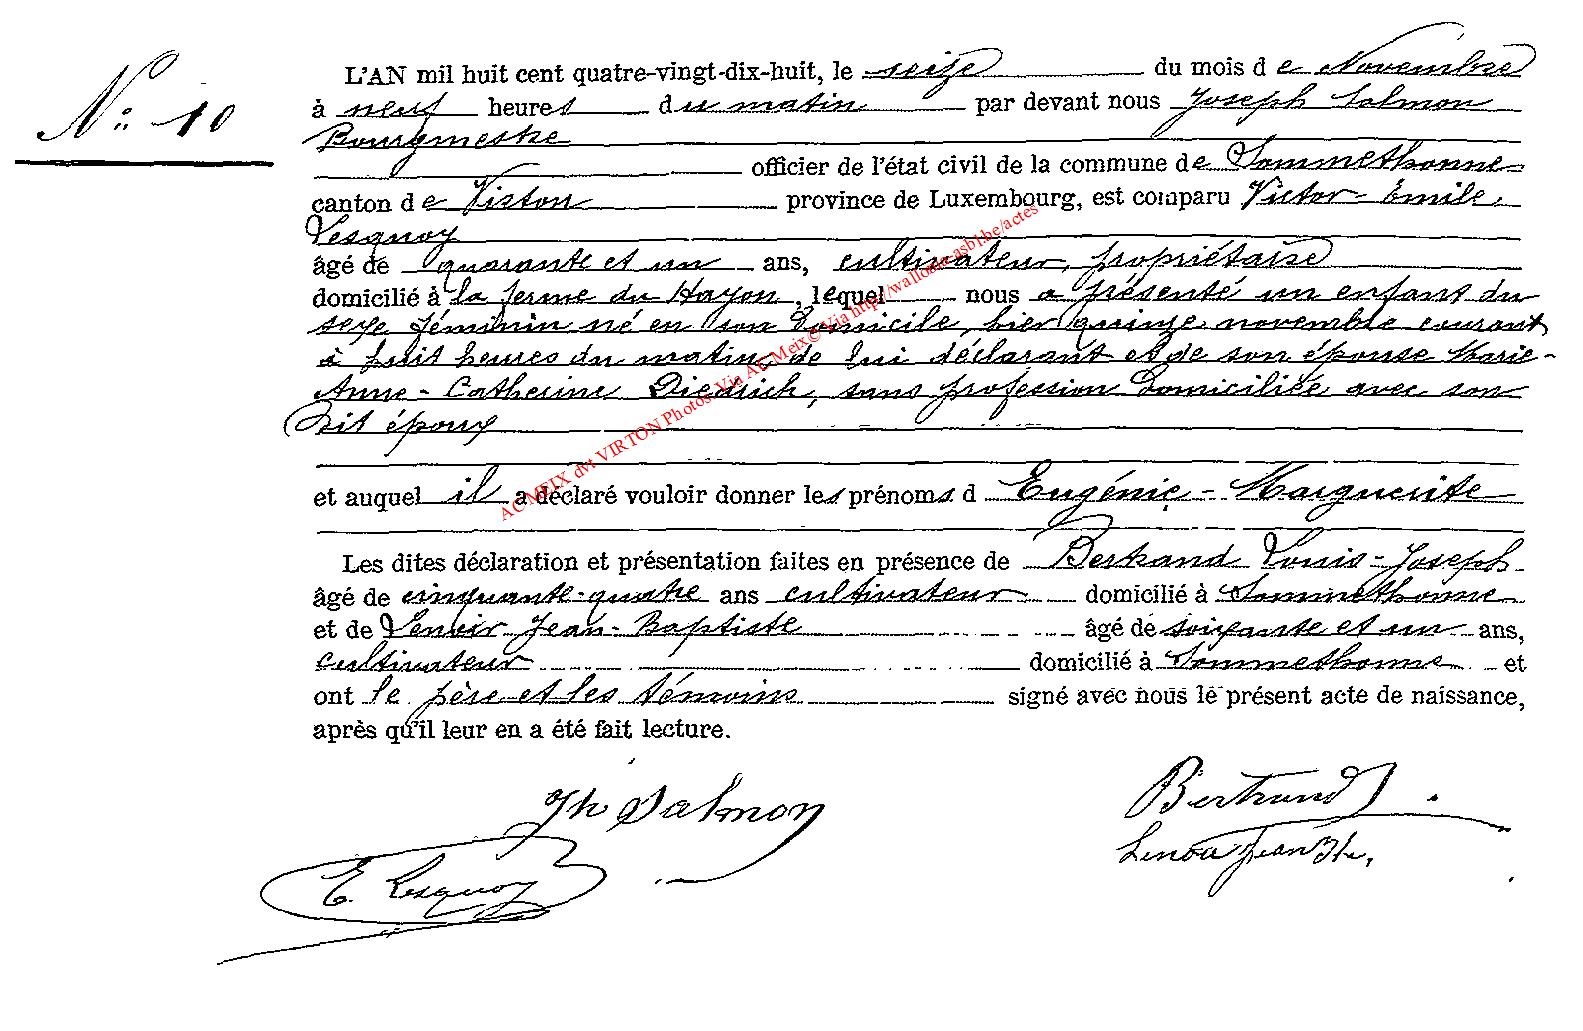 L'AN mil huit cent quatre-vingt-dix-huit, le seize du mois de Novembre
N° 10
à neuf heures du matin par devant nous Joseph Salmon
Bourgmestre
officier de l'état civil de la commune de Sommethonne
canton de Virton province de Luxembourg, est comparu Victor-Emile
Lesquoy
âgé de quarante et un ans, cultivateur, propriétaire
domicilié à la ferme du Hayon, lequel nous a présenté un enfant du
sexe féminin né en son domicile, hier quinze novembre courant
à huit heures du matin, de lui déclarant et de son épouse Marie-
Anne-Catherine Diedrich, sans profession domiciliée avec son
dit époux
et auquel il a déclaré vouloir donner les prénoms d Eugénie-Marguerite
Les dites déclaration et présentation faites en présence de Bertrand Louis-Joseph
âgé de cinquante-quatre ans cultivateur domicilié à Sommethonne
et de Lenoir Jean-Baptiste âgé de soixante et un ans,
cultivateur domicilié à Sommethonne et
ont le père et les témoins signé avec nous le présent acte de naissance,
après qu'il leur en a été fait lecture.
Jh Salmon
Bertrand
Lenoir Jean Bte,
E. Lesquoy
AC MEIX dvt VIRTON Photos: Via AC Meix © Via http://wallonia-asbl.be/actes